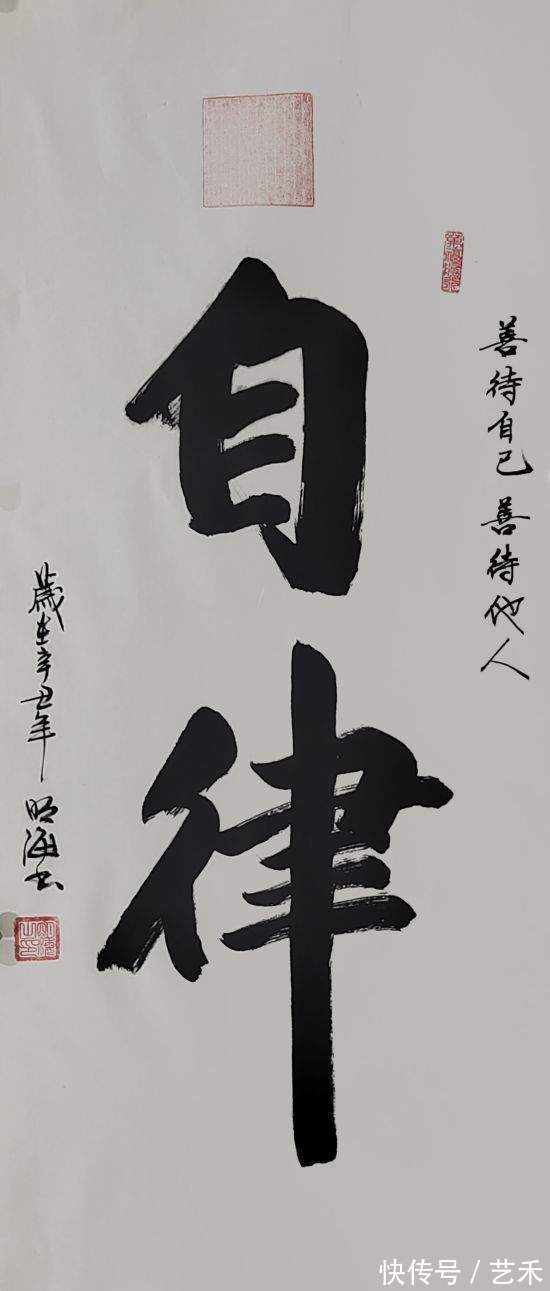 善待自己 善待他人
自律
歲在辛丑年 明海書
快传号 / 艺禾